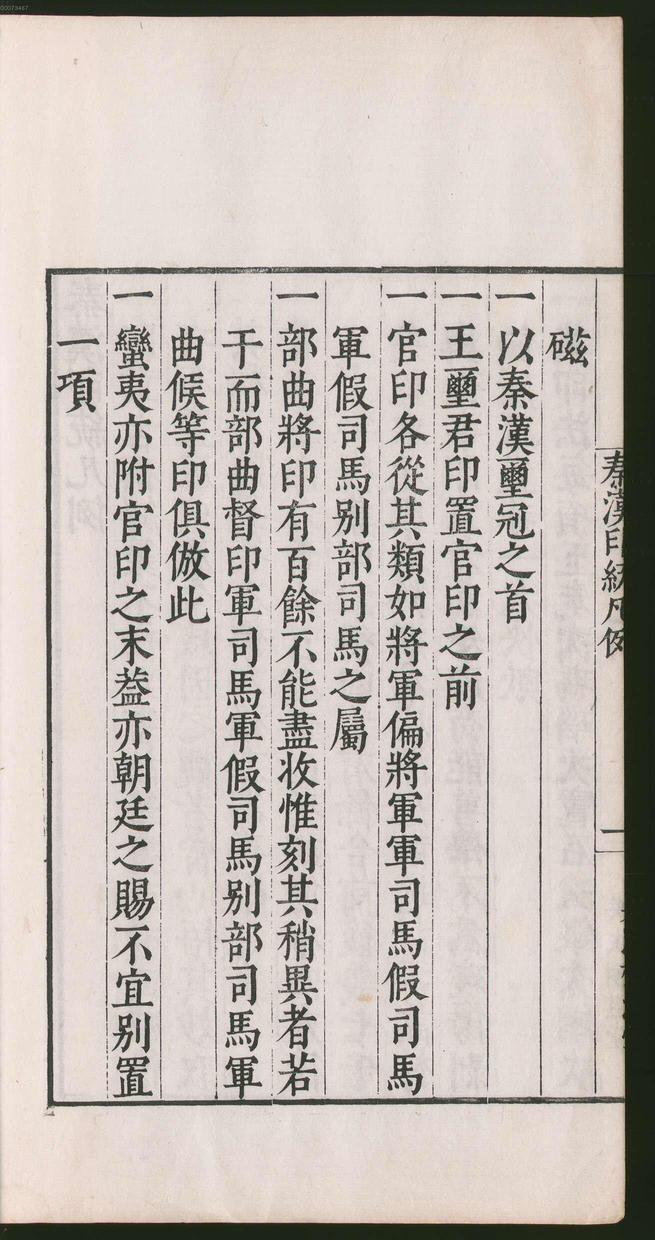 00073467
秦漢印統凡例
二
磁
一以秦漢璽冠之首
一王璽君印置官印之前
一官印各從其類如將軍偏將軍軍司馬假司馬
軍假司馬别部司馬之屬
一部曲將印有百餘不能盡收惟刻其稍異者若
干而部曲督印軍司馬軍假司馬别部司馬軍
曲候等印俱倣此
一蠻夷亦附官印之末葢亦朝廷之賜不宜别置
一項